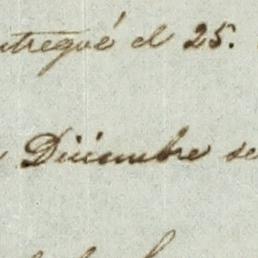 ntregué el 25.
Diciembre se